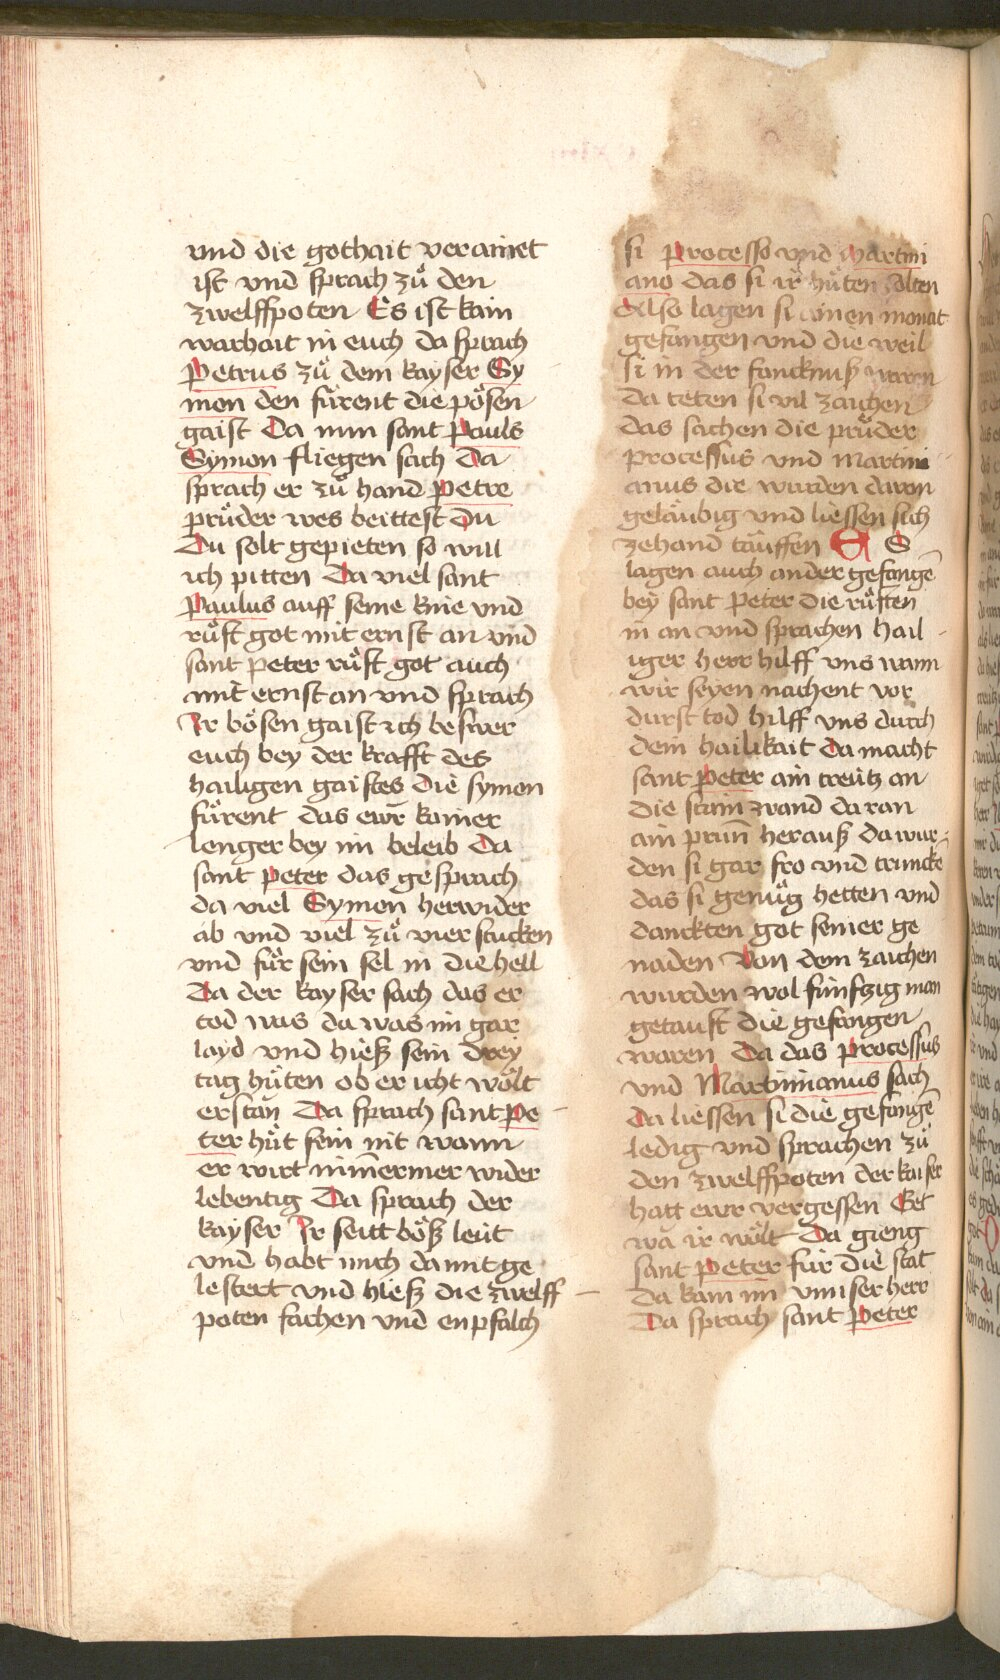 vnd die gothait verainet
ist vnd sprach zuͦ den
zwelffpoten Es ist kain
warhait in euch da sprach
Petrus zuͦ dem kayser Sy
mon den fürent die poͤsen
gaist Da nun sant Pauls
Symon fliegen sach Da
sprach er zuͦ hand Petre
pruͤder wes beittest Du
Du solt gepieten so will
ich pitten Da viel sant
Paulus auff seine knie vnd
ruͦft got mit ernst an vnd
sant Peter ruͦft got auch
mit ernst an vnd sprach
Ir boͤsen gaist ich beswer
euch bey der krafft des
hailigen gaistes Die symon
fuͤrent das ewr̄ kainer
lenger bey im beleib Da
sant Peter das gesprach
da viel Symon herwider
ab vnd viel zuͦ vier stucken
vnd fuͦr sein sel in die hell
Da der kayser sach das er
tod was da was im gar
layd vnd hieß sein drey
tag huͤten ob er icht woͤlt
erstan Da sprach sant Pe
ter huͤt sein nit wann
er wirt nim̄ermer wider
lebentig Da sprach der
kayser Ir seitt boͤß leüt
vnd habt mich damit ge
lestert vnd hieß die zwelff
poten fachen vnd enpfalch
si Processo vnd Martini
ano das si ir huͤten solten
Also lagen si ainen monat
gefangen vnd die weil
si in der fancknuß waren
Da teten si vil zaichen
das sachen die pruͤder
Processus vnd Martini
anus die wurden davon
geläubig vnd liessen sich
zehand täuffen E S
lagen auch ander gefangē
bey sant Peter die ruͦften
in an vnd sprachen hail
iger herr hilff vns wann
wir seyen nachent vor
durst tod hilff vns durch
dein hailikait Da macht
sant Peter ain creütz an
die stain wand daran
ain prun̄ herauß da wur
den si gar fro vnd trunckē
das si genuͦg hetten vnd
danckten got seiner ge
naden Von dem zaichen
wurden wol fünfzig man
getauft die gefangen
waren Da das Processus
vnd Martinianus sach
Da liessen si die gefangē
ledig vnd sprachen zuͦ
den zwelffpoten der kaiser
hatt ewr vergessen Get
wa ir woͤlt Da gieng
sant Peter für die stat
Da kam im vnnser herr
Da sprach sant Peter